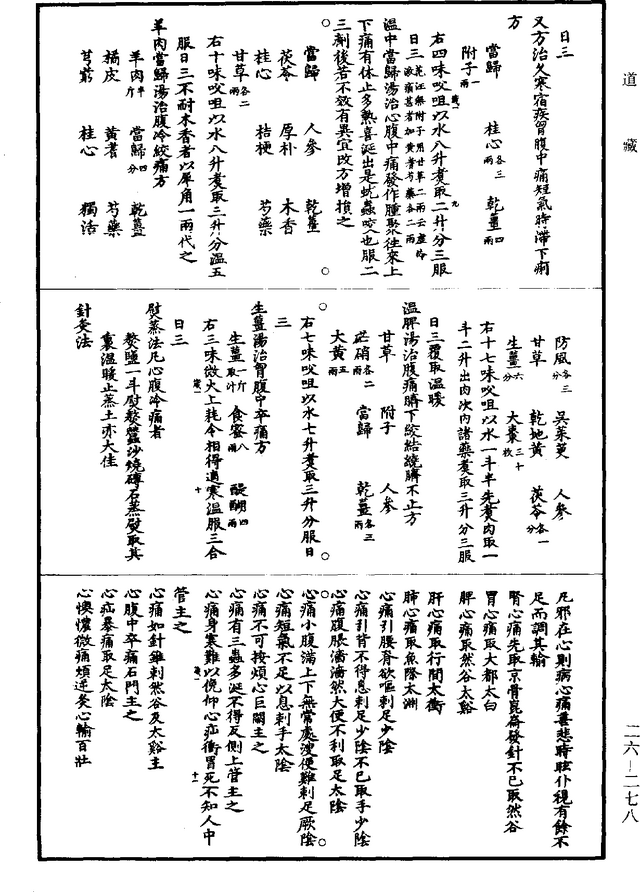 道藏
二六—二七八
日三
又方治久寒宿疾胃腹中痛短氣時滯下痢
方
當歸　桂心各三兩　乾薑四兩
附子一兩
右四味㕮咀以水八升煮取二升分三服
日三
溫中當歸湯治心腹中痛發作腫聚往來上
下痛有休止多熱喜涎出是蚘蟲咬也服二
三劑後若不效有異宜改方增損之
當歸　人參　乾薑
茯苓　厚朴　木香
桂心　桔梗　芍藥
甘草各二兩
右十味㕮咀以水八升煮取三升分溫五
服日三不耐木香者以犀角一兩代之
羊肉當歸湯治腹冷絞痛方
羊肉半斤　當歸四分　乾薑
橘皮　黃耆　芍藥
芎藭　桂心　獨活
防風各三分　吳茱萸　人參
甘草　乾地黃　茯苓各一分
生薑六分　大棗三十枚
右十七味㕮咀以水一斗半先煮肉取一
斗二升出肉次內諸藥煮取三升分三服
日三覆取溫暖
溫脾湯治腹痛臍下絞結繞臍不止方
甘草　附子　人參
芒硝各二兩　當歸　乾薑各三兩
大黃五兩
右七味㕮咀以水七升煮取三升分服日
三
生薑湯治胃腹中卒痛方
生薑一斤取汁　食蜜八兩　醍醐四兩
右三味微火上耗令相得適寒溫服三合
日三
熨蒸法凡心腹冷痛者
熬鹽一斗熨熬蠶沙燒磚石蒸熨取其
裏溫暖止蒸土亦大佳
針灸法
凡邪在心則病心痛喜悲時眩仆視有餘不
足而調其輸
腎心痛先取京骨崑崙發針不已取然谷
胃心痛取大都太白
脾心痛取然谷太谿
肝心痛取行間太衝
肺心痛取魚際太淵
心痛引腰脊欲嘔刺足少陰
心痛引背不得息刺足少陰不已取手少陰
心痛腹脹濇濇然大便不利取足太陰
心痛小腹滿上下無常處溲便難刺足厥陰
心痛短氣不足以息刺手太陰
心痛不可按煩心巨闕主之
心痛有三蟲多涎不得反側上管主之
心痛身寒難以俛仰心疝衝冒死不知人中
管主之
心痛如針錐刺然谷及太谿主
心腹中卒痛石門主之
心疝暴痛取足太陰
心懊憹微痛煩逆灸心輸百壯